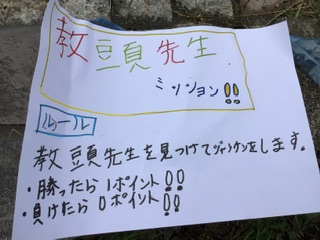 教頭先生
ミッション!!
ルール
教頭先生を見つけてジャンケンをします。
・勝ったら1ポイント!!
・負けたら0ポイント!!